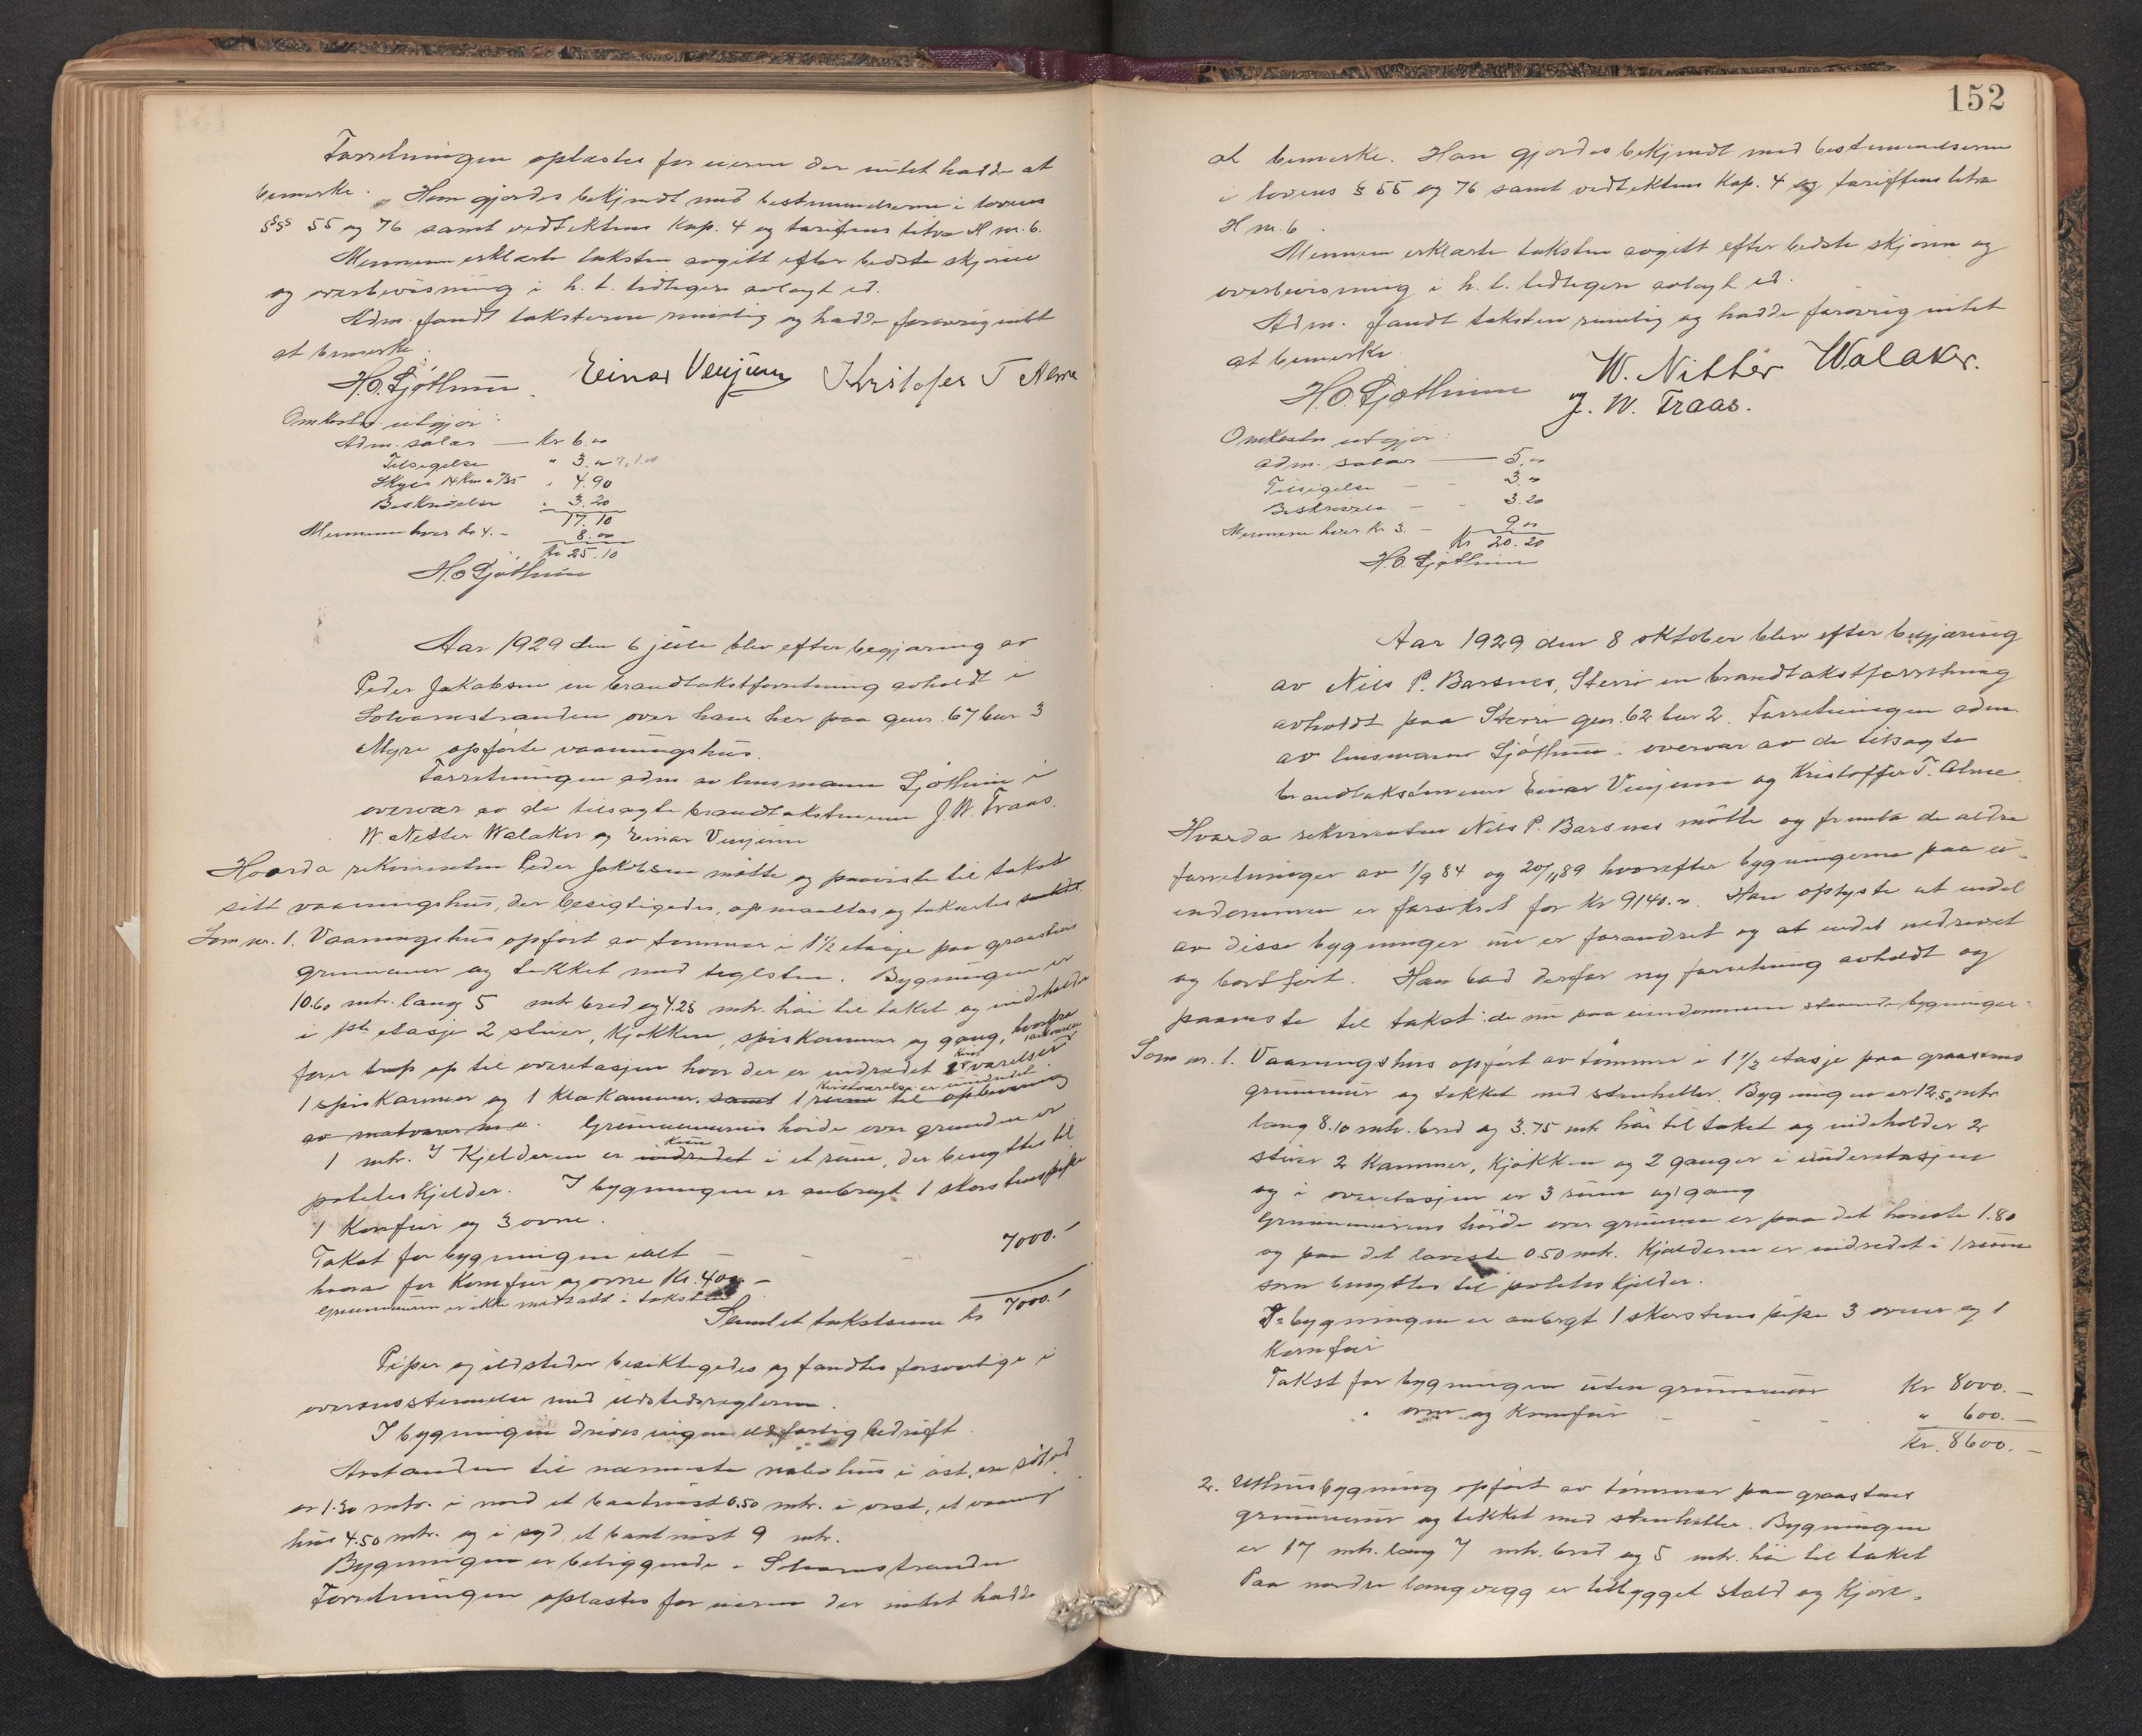 Forretningen oplæstes for eieren der intet hadde at
bemerke. Han gjordes bekjendt med bestemmelserne i lovens
§§ 55 og 76 samt vedtektens Kap. 4 og tarifens litra H nr. 6.
Mennene erklærte taksten avgitt efter bedste skjønn
og overbevisning i h. t. tidligere avlagt ed.
Adm. fandt taksterne rimelig og hadde forøvrig intet
at bemerke.
H.O. Sjøthun Einar Venjum Kristofer T Alme
Omkostn. utgjør:
Adm. salær — Kr 6.00
Tilsigelse " 3.00
Skyss 14 Km a /35 " 4.90
Beskrivelse " 3.20
17.10
Mennene hver kr 4.- 8.00
Kr 25.10
H.O Sjøthun
Aar 1929 den 6 juli blev efter begjæring av
Peder Jakobsen en brandtakstforretning avholdt i
Solvornstranden over hans her paa gnr. 67 bnr 3
Myre opførte vaaningshus.
Forretningen adm. av lensmann Sjøthun i
overvær av de tilsagte brandtakstmenn J. W. Traas.
W. Nitter Walaker og Einar Venjum
Hvorda rekvirenten Peder Jakobsen møtte og paaviste til takst
sitt vaaningshus, der besigtigedes, opmaaltes og takseres
Som nr. 1. Vaaningshus opført av tømmer i 1 1/2 etasje paa graastens
grunnmur og tekket med teglsten. Bygningen er
10.60 mtr. lang 5 mtr bred og 4.25 mtr. høi til taket og indeholder
i 1ste etasje 2 stuer, Kjøkken, spiskammer og gang, hvorfra
fører trap op til overetasjen hvor der er indredet 1 kvistværelser
1 spiskammer og 1 Klækammer. samt 1 rum til opbevaring
Kvistværelse er uindredet
av matvarer m.v. Grunnmurens høide over grunden er
1 mtr. I Kjelderen er indredet i et rum, der benyttes til
poteteskjelder. I bygningen er anbragt 1 skorstenspipe
1 Komfur og 3 ovne.
Takst for bygningen ialt — 7000.-
hvorav for Komfur og ovne Kr. 400 -
Grunnmuren er ikke medtatt i taksten
Samlet takstsum kr 7000.-
Piper og ildsteder besiktigedes og fandtes forsvarlige i
overensstemmelse med ildstedsreglerne.
I bygningen drives ingen ildsfarlig bedrift.
Avstanden til nærmeste nabohus i øst,
er 1.30 mtr. i nord et baatnøst 0.50 mtr. i vest, et vaanings
hus 4.50 mtr. og i syd et baatnøst 9 mtr.
Bygningen er beliggende i Solvornstranden
Forretningen oplæstes for eieren der intet hadde
152
at bemerke. Han gjordes bekjendt med bestemmelserne
i lovens § 55 og 76 samt vedtektens Kap. 4 og tariffens litra
H nr. 6
Mennene erklærte taksten avgitt efter bedste skjønn og
overbevisning i h. t. tidligere avlagt ed.
Adm. fandt taksten rimelig og hadde forøvrig intet
at bemerke.
H.O. Sjøthun W. Nitter Walaker.
J. W. Traas.
Omkostn utgjør:
Adm. salær — 5.00
Tilsigelse — - 3.00
Beskrivelse — - 3.20
Mennene hver Kr 3. — 9.00
Kr 20.20
H.O. Sjøthun
Aar 1929 den 8 oktober blev efter begjæring
av Nils P. Barsnes, Sterri en brandtakstforretning
avholdt paa Sterri gnr. 62 bnr 2. Forretningen adm.
av lensmann Sjøthun i overvær av de tilsagte
brandtakstmenn Einar Venjum og Kristoffer T. Alme.
Hvorda rekvirenten Nils P. Barsnes møtte og fremla de ældre
forretninger av 1/9 84 og 20/11 89 hvorefter bygningerne paa ei-
endommen er forsikret for Kr 9140.00. Han oplyste at endel
av disse bygninger nu er forandret og at endel nedrevet
og bortført. Han bad derfor ny forretning avholdt og
paaviste til takst de nu paa eiendommen staaende bygninger:
Som nr. 1. Vaaningshus opført av tømmer i 1 1/2 etasje paa graastens
grunnmur og tekket med stenheller. Bygningen er 12.50 mtr
lang 8.10 mtr. bred og 3.75 mtr høi til taket og indeholder 2
stuer 2 Kammer, Kjøkken og 2 ganger i underetasjen
og i overetasjen er 3 rum og 1 gang
Grunnmurens høide over grunnen er paa det høieste 1.80
og paa det laveste 0.50 mtr. Kjelderen er indredet i 1 rum
som benyttes til poteteskjelder.
I bygningen er anbragt 1 skorstenspipe 3 ovner og 1
Komfur
Takst for bygningen uten grunnmur Kr 8000.—
" ovne og Komfur — - - " 600.—
Kr. 8600.—
2. Uthusbygning opført av tømmer paa graastens
grunnmur og tekket med stenheller. Bygningen
er 17 mtr. lang 7 mtr. bred og 5 mtr. høi til taket
Paa nordre langvegg er tilbygget stald og Kjøre-